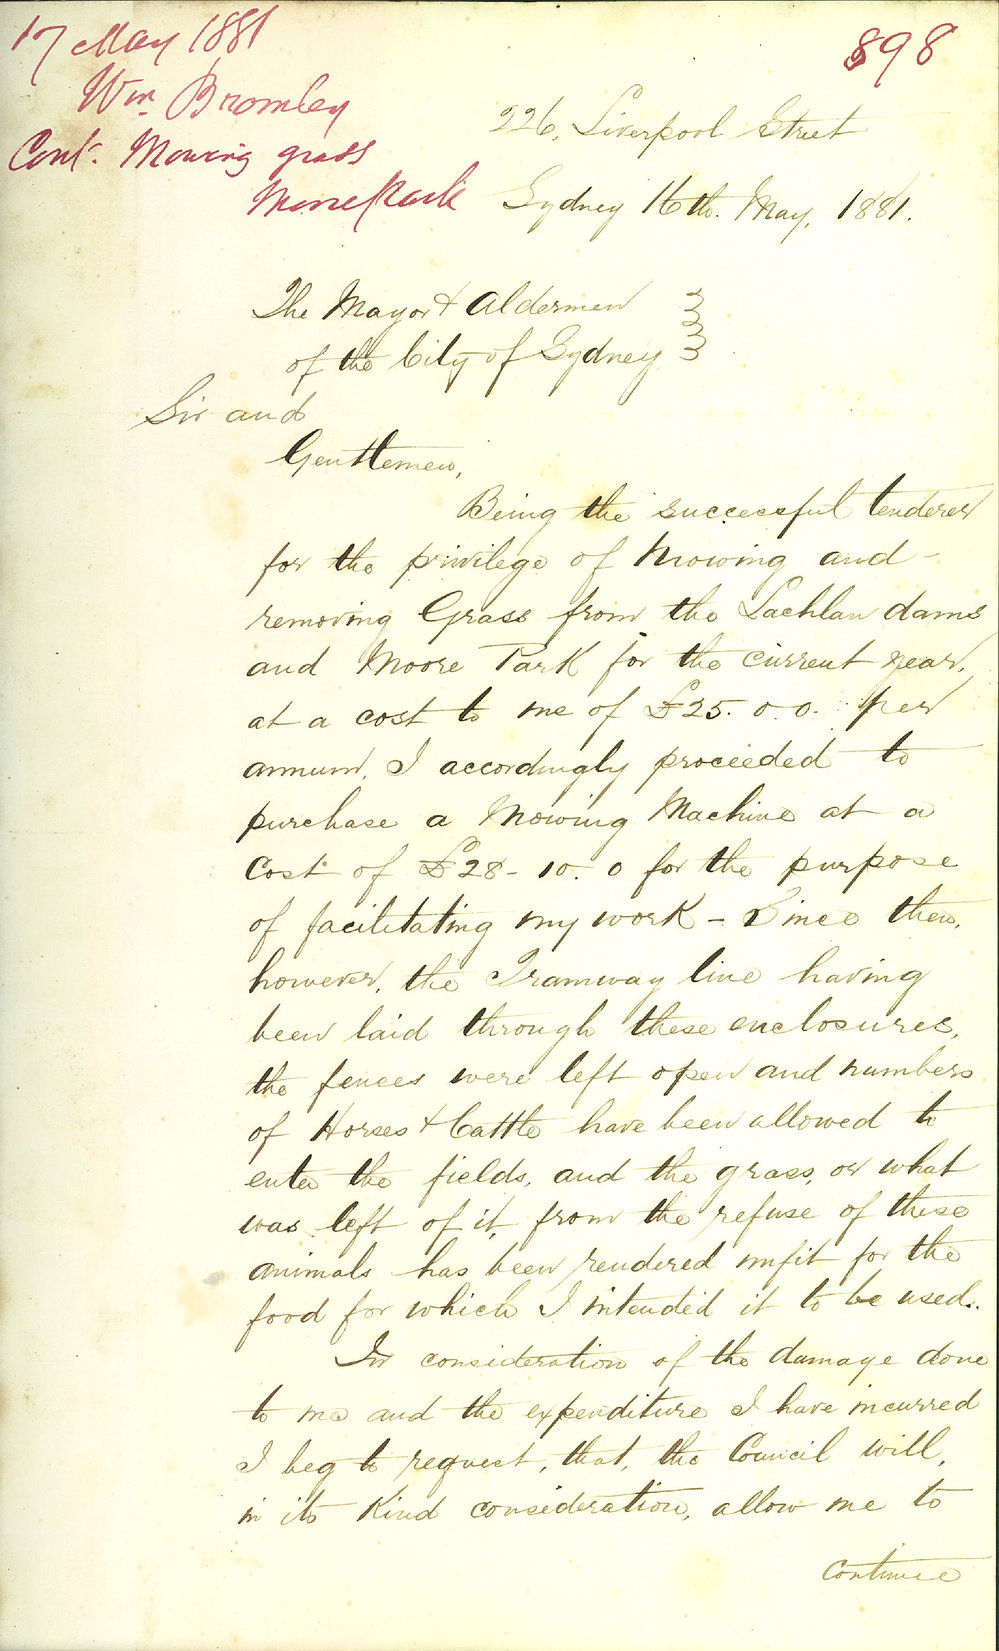 17 May 1881
898
Wm. Bromley
Cont. Mowing grass
Moore Park
226, Liverpool Street
Sydney 16th. May, 1881.
The Mayor & Aldermen
of the City of Sydney
Sir and
Gentlemen,
Being the successful tenderer
for the privilege of Mowing and -
removing Grass from the Lachlan dams
and Moore Park for the current year,
at a cost to me of £25. 0. 0. per
annum, I accordingly proceeded to
purchase a Mowing Machine at a
Cost of £28 - 10. 0 for the purpose
of facilitating my work - Since then,
however, the Tramway line having
been laid through these enclosures,
the fences were left open and numbers
of Horses & Cattle have been allowed to
enter the fields, and the grass, or what
was left of it, from the refuse of these
animals has been rendered unfit for the
food for which I intended it to be used.
In consideration of the damage done
to me and the expenditure I have incurred
I beg to request, that, the Council will,
in its Kind consideration, allow me to
continue